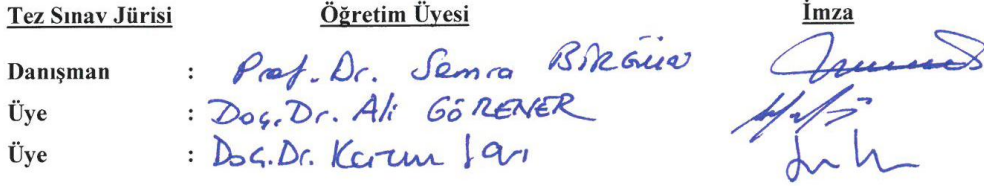 Tez Sınav Jürisi Öğretim Üyesi İmza
Danışman : Prof. Dr. Semra BİRGÜN
Üye : Doç. Dr. Ali GÖRENER
Üye : Doç. Dr. Kazım Sarı